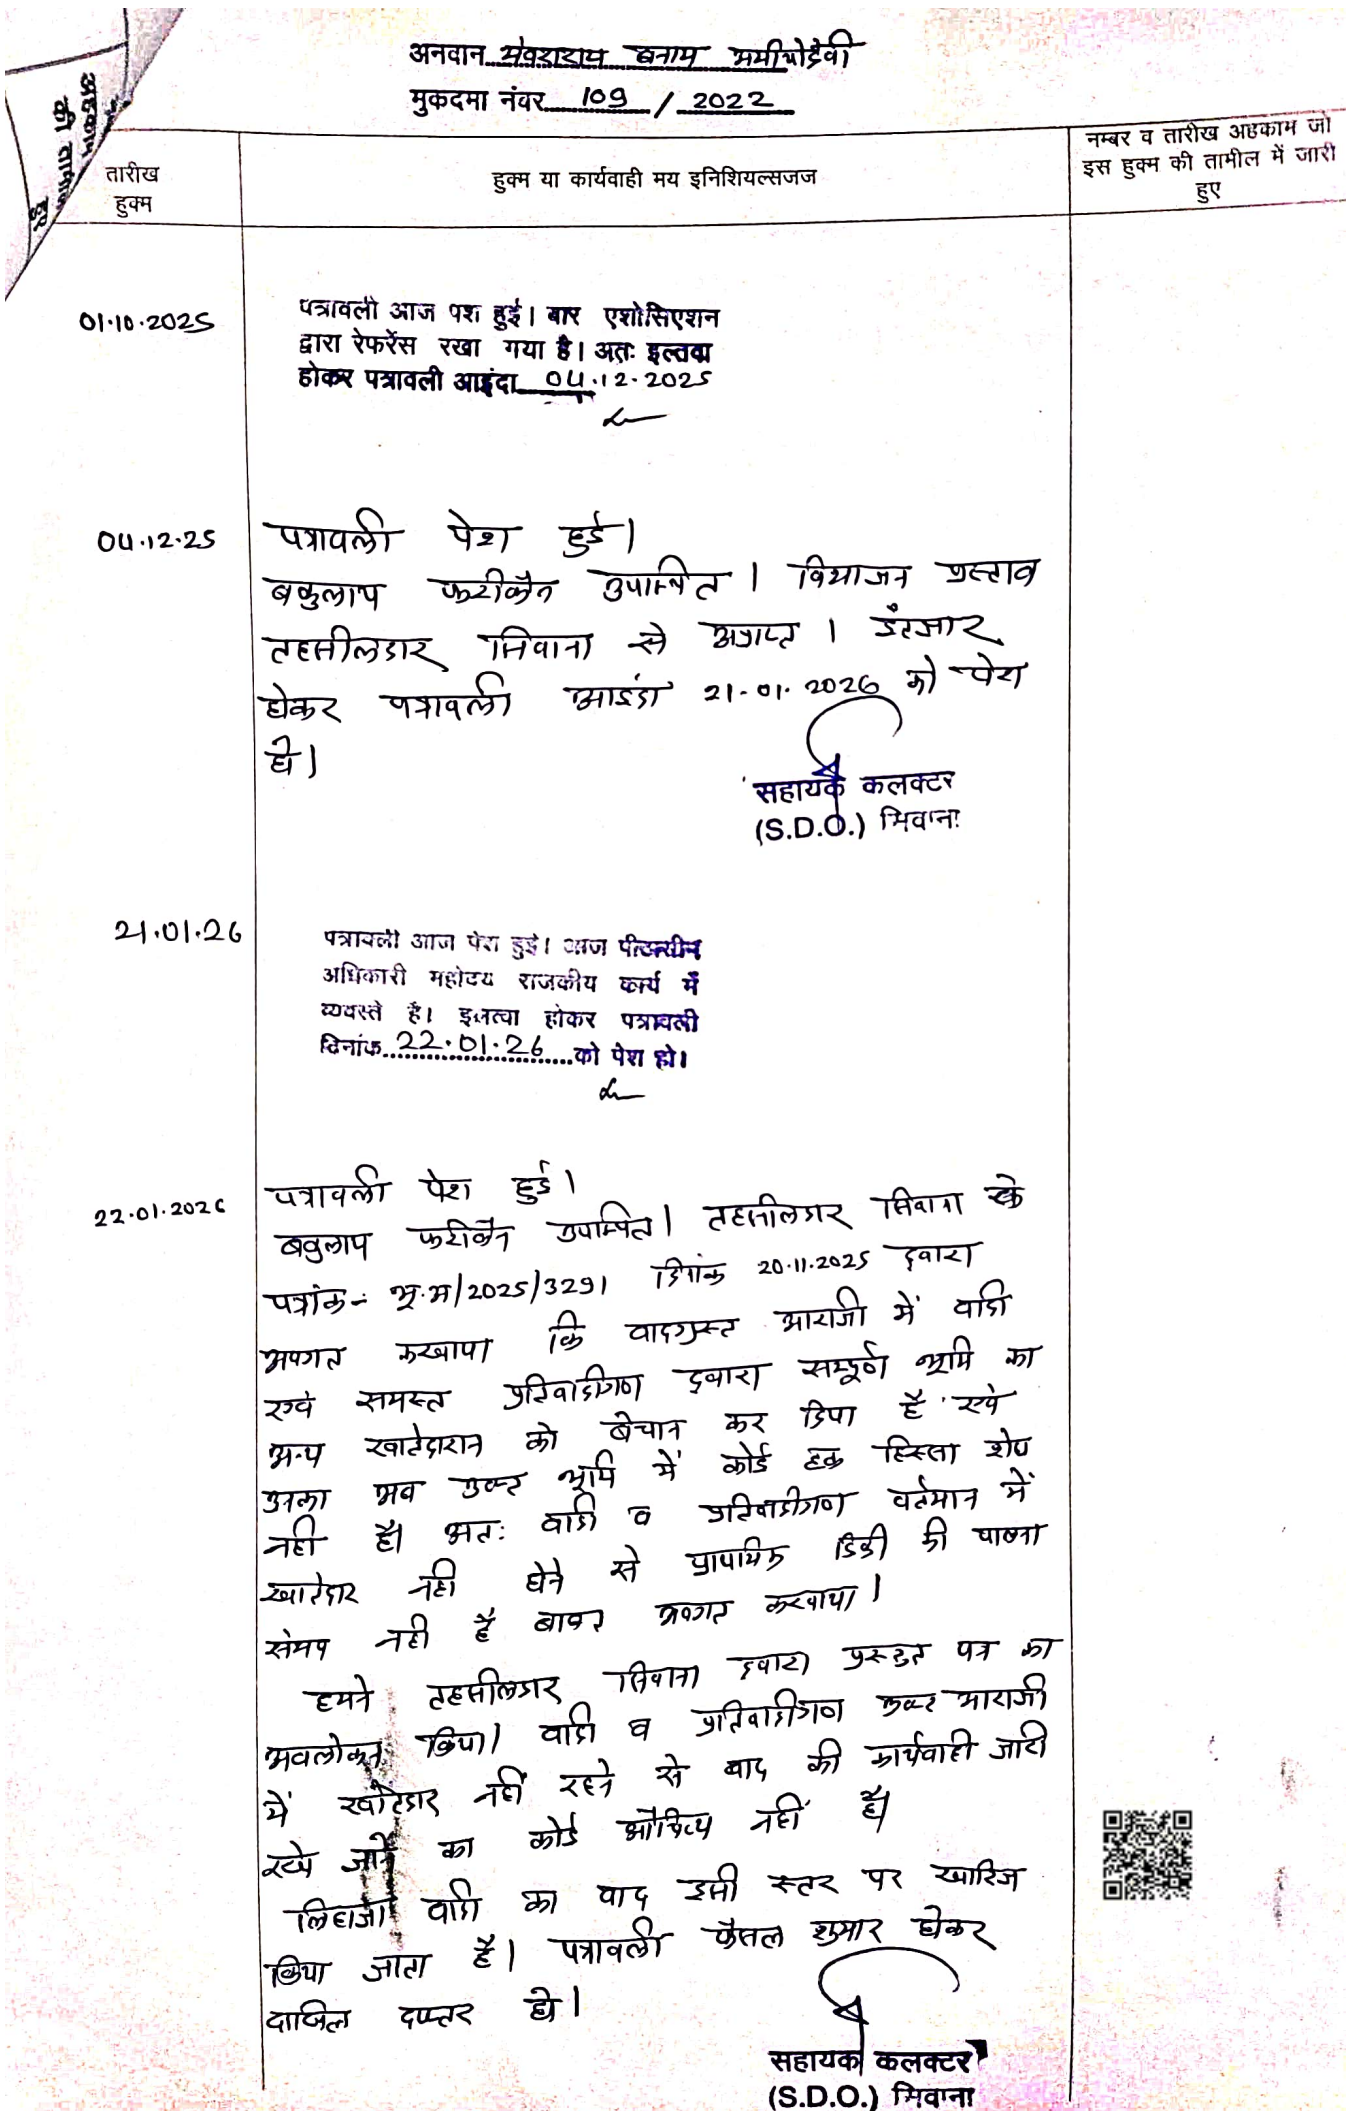 अनवान भंवराराम बनाम ममीयोदेवी
मुकदमा नंबर 109 / 2022
तारीख
हुक्म
हुक्म या कार्यवाही मय इनिशियल्सजज
नम्बर व तारीख अहकाम जो
इस हुक्म की तामील में जारी
हुए
01.10.2025
पत्रावली आज पेश हुई। बार एशोसिएशन
द्वारा रेफरेंस रखा गया है। अतः इल्तवा
होकर पत्रावली आइंदा 04.12.2025
04.12.25
पत्रावली पेश हुई।
वकुलाय फरीकैन उपस्थित। विभाजन प्रस्ताव
तहसीलदार सिवाना से अप्राप्त। इंतजार
होकर पत्रावली आइंदा 21-01.2026 को पेश
हो।
सहायक कलक्टर
(S.D.O.) सिवाना
21.01.26
पत्रावली आज पेश हुई। आज पीठासीन
अधिकारी महोदय राजकीय कार्य में
व्यवस्त है। इलत्वा होकर पत्रावली
दिनांक 22.01.26 को पेश हो।
22.01.2026
पत्रावली पेश हुई।
वकुलाय फरीकैन उपस्थित। तहसीलदार सिवाना के
पत्रांक:- भू.अ/2025/3291 दिनांक 20.11.2025 द्वारा
अवगत करवाया कि वादग्रस्त आराजी में वादी
एवं समस्त प्रतिवादीगण द्वारा सम्पूर्ण भूमि का
अन्य खातेदारान को बेचान कर दिया है एवं
उनका अब उक्त भूमि में कोई हक हिस्सा शेष
नहीं है। अतः वादी व प्रतिवादीगण वर्तमान में
खातेदार नहीं होने से प्राथमिक डिक्री की पालना
संभव नहीं है बाबत अवगत करवाया।
हमने तहसीलदार सिवाना द्वारा प्रस्तुत पत्र का
अवलोकन किया। वादी व प्रतिवादीगण उक्त आराजी
में खातेदार नहीं रहने से वाद की कार्यवाही जारी
रखे जाने का कोई औचित्य नहीं है।
लिहाजा वादी का वाद इसी स्तर पर खारिज
किया जाता है। पत्रावली फैसल शुमार होकर
दाखिल दफ्तर हो।
सहायक कलक्टर
(S.D.O.) सिवाना